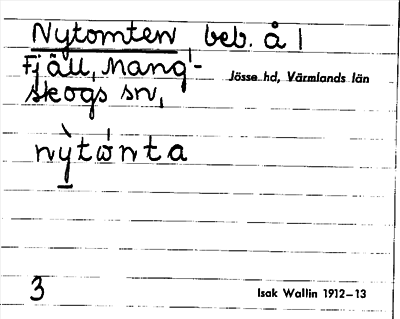 Nytomten, beb. å 1
Fjäll, Mang-
skogs sn,
Jösse hd, Värmlands län
nỳtώnta
3
Isak Wallin 1912–13